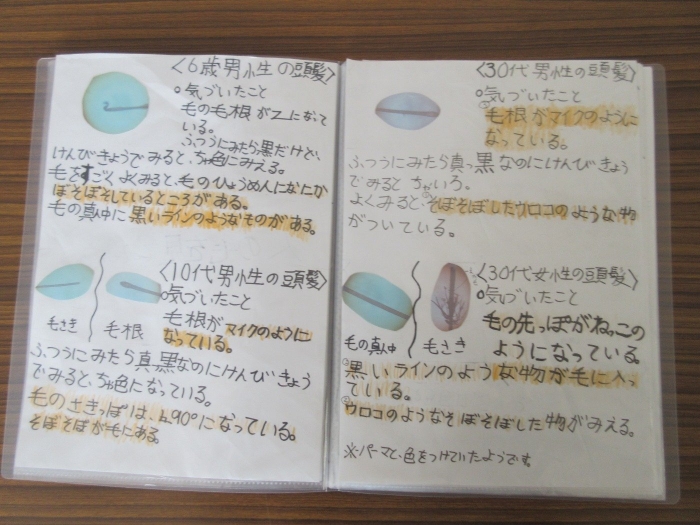 〈6歳男性の頭髪〉
○気づいたこと
毛の毛根がZになって
いる。
ふつうにみたら黒だけど、
けんびきょうでみると、ちゃ色にみえる。
毛をすごくよくみると、毛のひょうめんになにか
ぼそぼそしているところがある。
毛の真中に黒いラインのようなものがある。
〈10代男性の頭髪〉
○気づいたこと
毛根がマイクのように
なっている。
毛さき
毛根
ふつうにみたら真黒なのにけんびきょう
でみると、ちゃ色になっている。
毛のさきっぽは、90°になっている。
そぼそぼが毛にある。
〈30代男性の頭髪〉
○気づいたこと
①毛根がマイクのように
なっている。
ふつうにみたら真っ黒なのにけんびきょう
でみるとちゃいろ。
よくみると②そぼそぼしたウロコのような物
がついている。
〈30代女性の頭髪〉
○気づいたこと
毛の先っぽがねっこの
ようになっている。
毛の真中
毛さき
①黒いラインのような物が毛に入っ
ている。
②ウロコのようなそぼそぼした物がみえる。
※パーマと、色をつけていたようです。